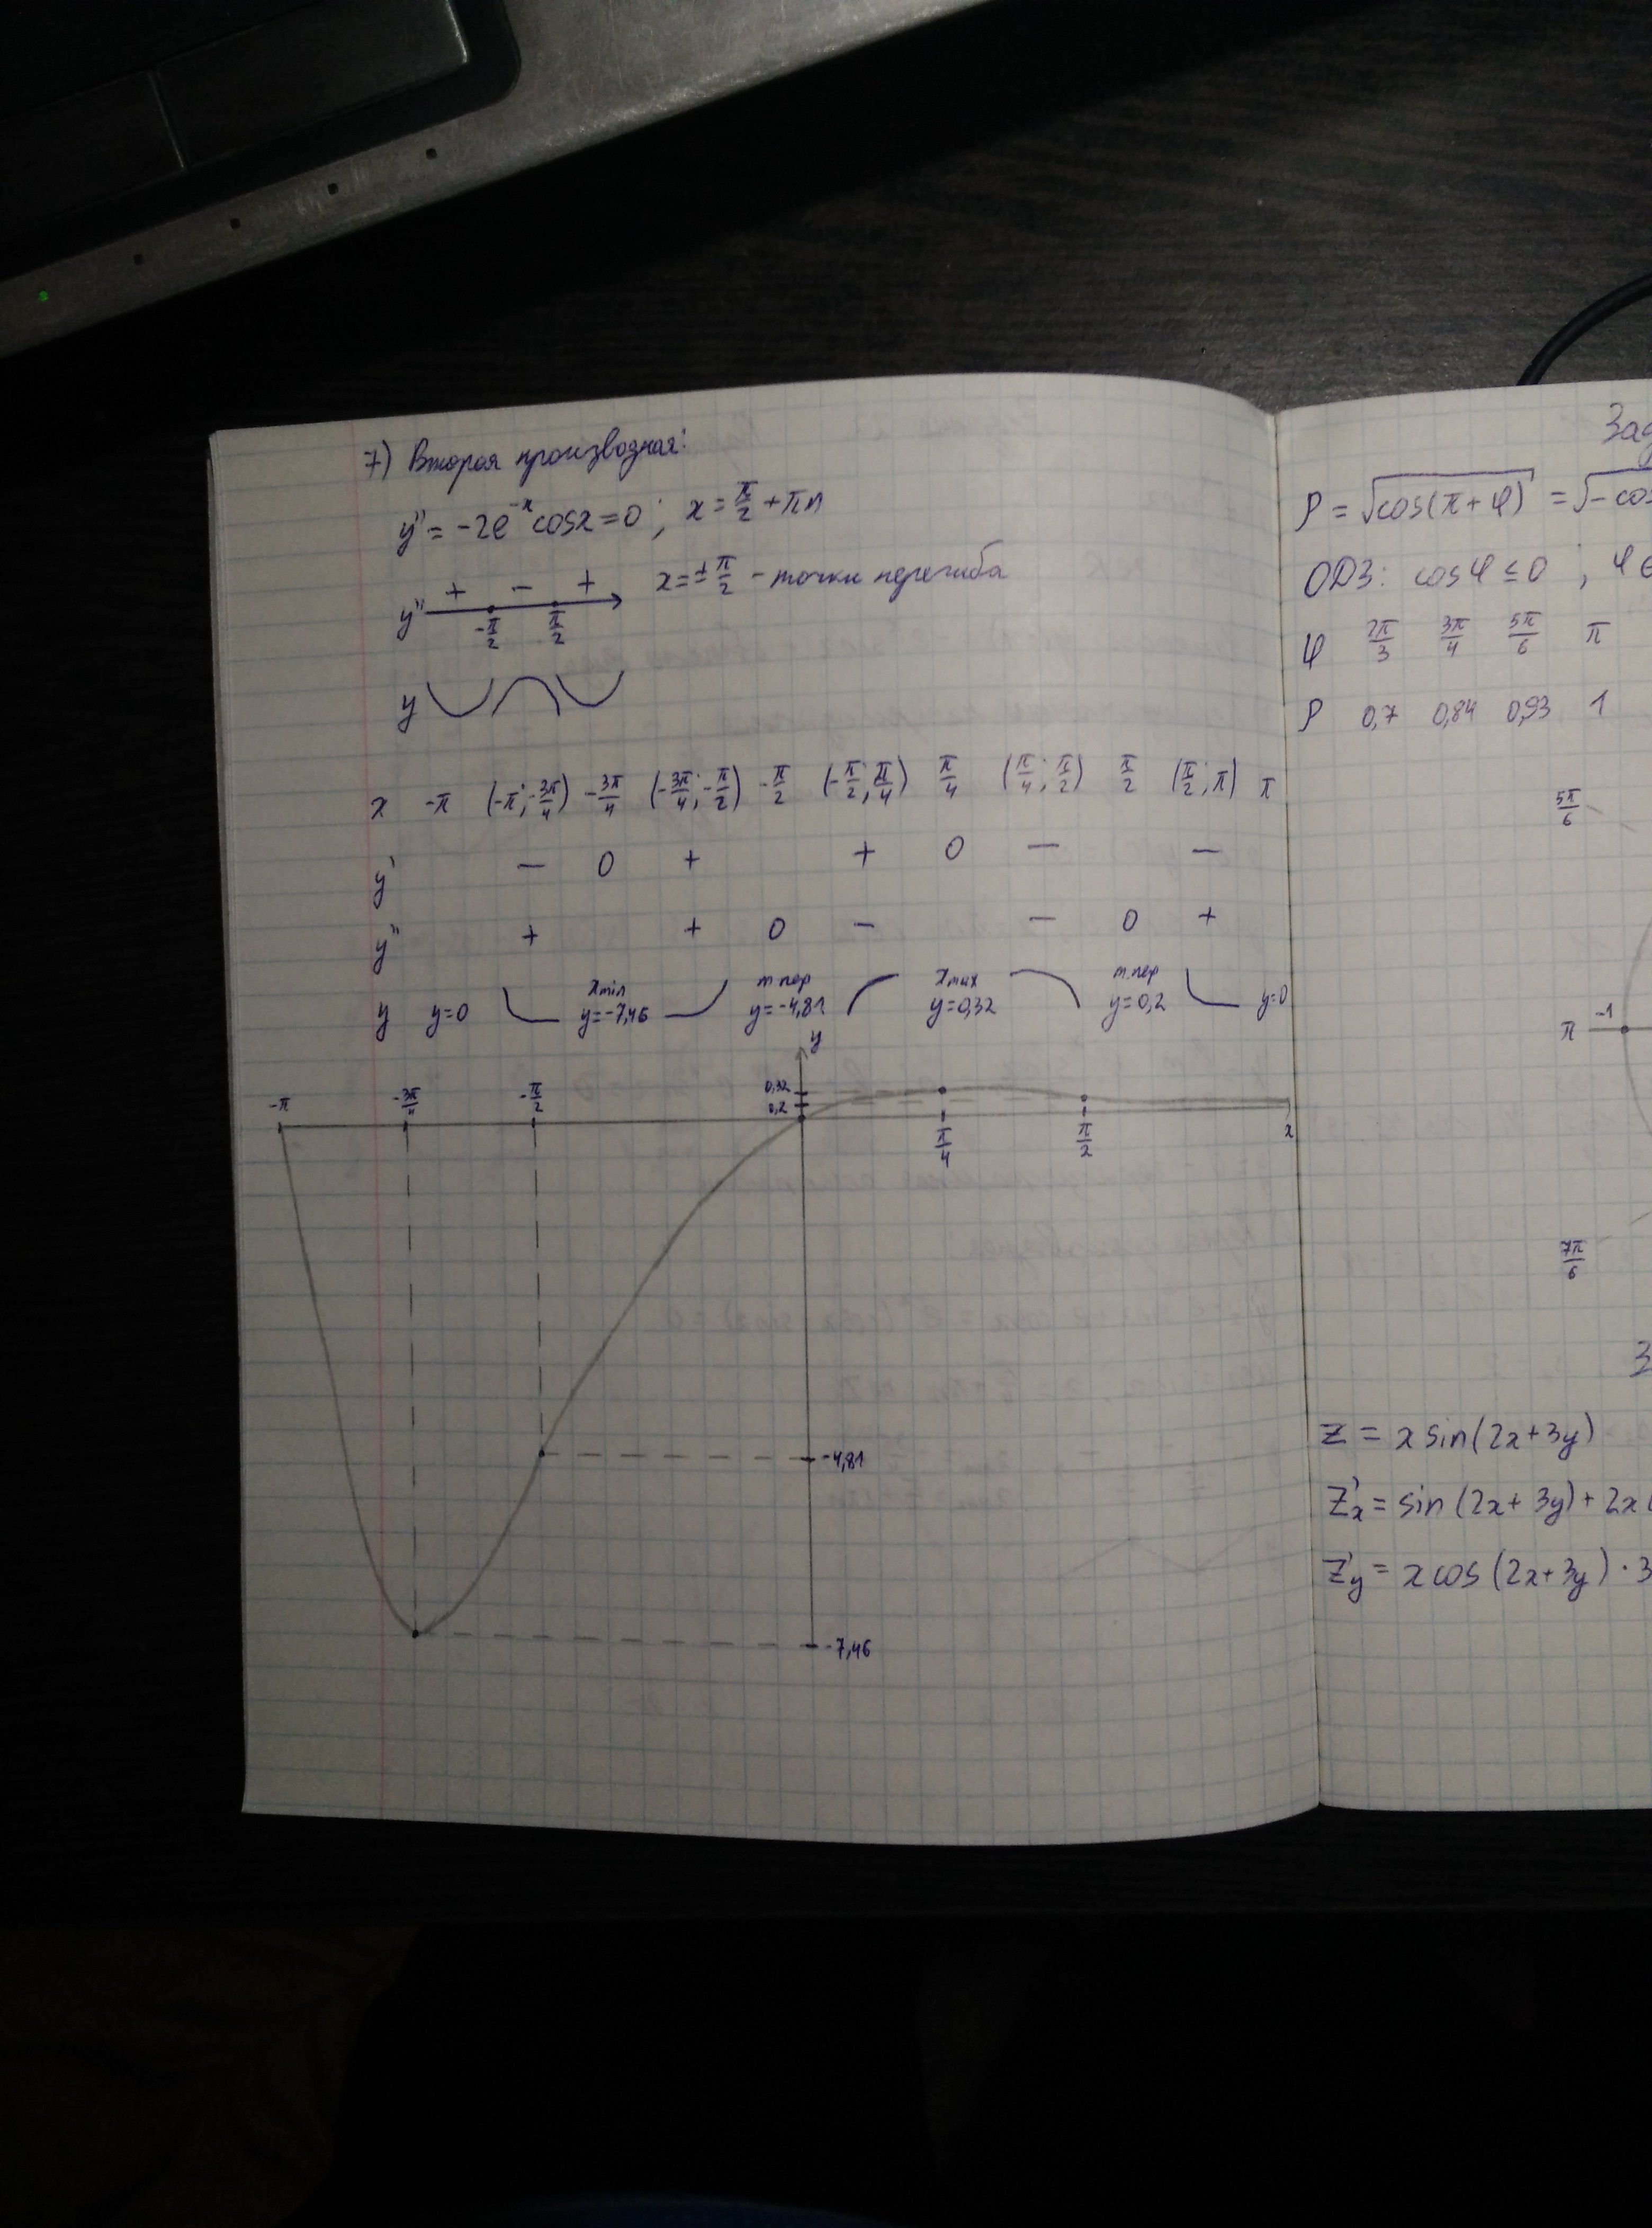 7) Вторая производная:
y'' = -2e^{-x} cosx = 0 ; x = π/2 + πn
+ - + x = ± π/2 - точки перегиба
y'' -π/2 π/2
y
x -π (-π; -3π/4) -3π/4 (-3π/4; -π/2) -π/2 (-π/2; π/4) π/4 (π/4; π/2) π/2 (π/2; π) π
y' - 0 + + 0 - -
y'' + + 0 - - 0 +
xmin т.пер xmax т.пер
y y=0 y=-7,46 y=-4,81 y=0,32 y=0,2 y=0
y
-π -3π/4 -π/2 0,32
0,2
π/4 π/2 x
-4,81
-7,46
Зад
ρ = √cos(π+φ) = √-cos
ОДЗ: cosφ ≤ 0 ; φ ∈
φ 2π/3 3π/4 5π/6 π
ρ 0,7 0,84 0,93 1
5π/6
π -1
7π/6
З
z = x sin(2x+3y)
z'x = sin(2x+3y) + 2x
z'y = x cos(2x+3y) · 3